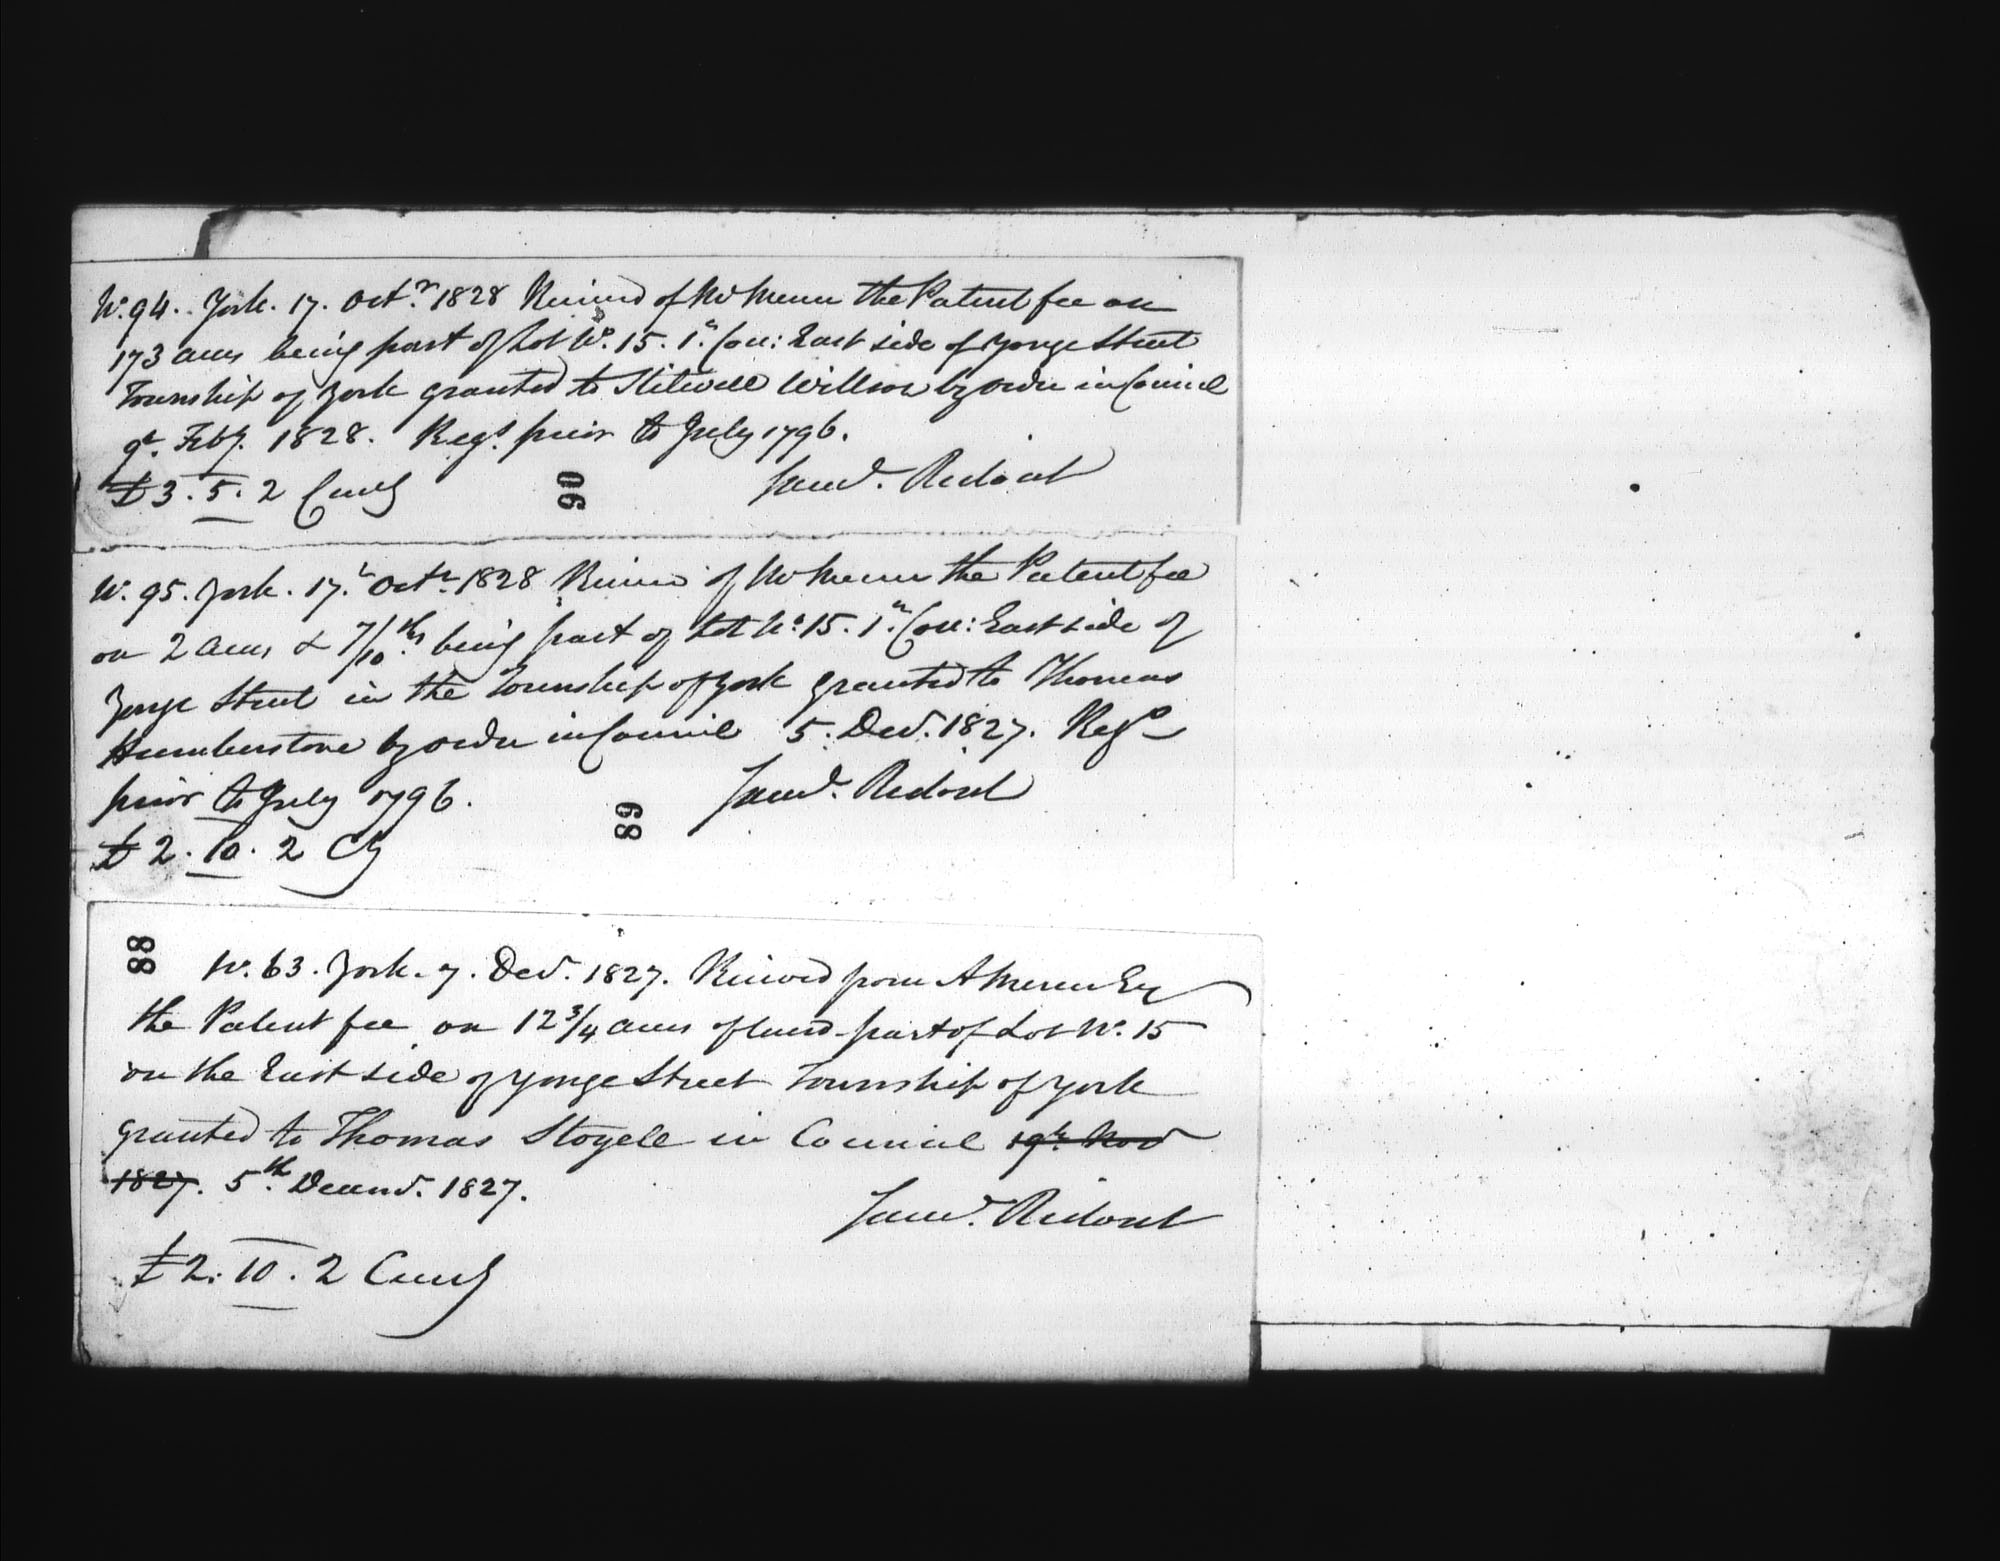 No. 94. York. 17. Octr. 1828 Received of Mr Mercer the Patent fee on
173 acres being part of Lot No. 15. 1st. Con: East side of Yonge Street
Township of York granted to Stilwell Willson by order in Council
9th. Feby. 1828. Regd. prior to July 1796.
£3.5.2 Curcy
90
Saml. Ridout
No. 95. York. 17th. Octr. 1828 Received of Mr Mercer the Patent fee
on 2 acres & 7/10ths being part of Lot No. 15. 1st. Con: East side of
Yonge Street in the Township of York granted to Thomas
Humberstone by order in Council 5. Decr. 1827. Regd
prior to July 1796.
Saml. Ridout
89
£2.10.2 Cy
88
No. 63. York. 7. Decr. 1827. Received from A Mercer Esq
the Patent fee on 12 3/4 acres of land part of Lot No. 15
on the East side of Yonge Street Township of York
granted to Thomas Stoyell in Council 19th. Novr
1827. 5th. Decemr. 1827.
Saml. Ridout
£2.10.2 Curcy